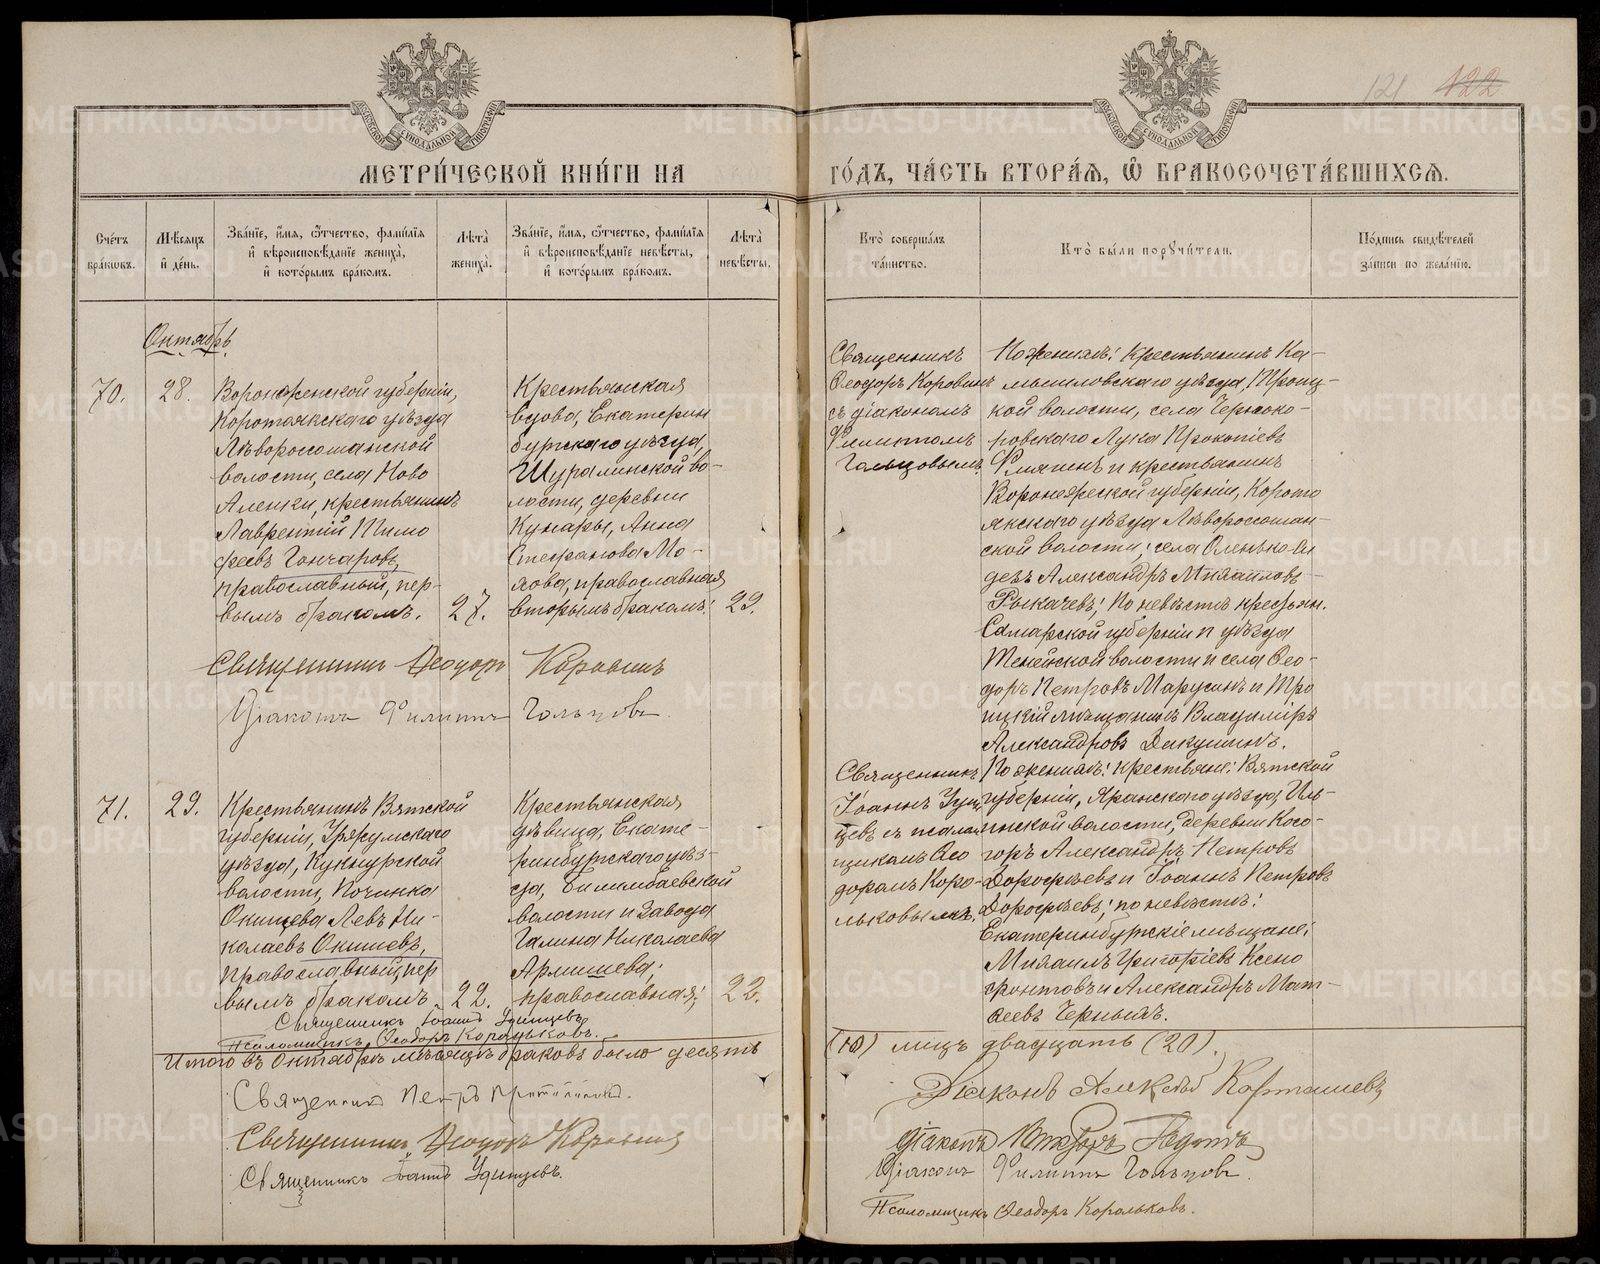 121 122
МЕТРИ́ЧЕСКОЙ КНИ́ГИ НА ГО́ДЪ, ЧА́СТЬ ВТОРА́Я, Ѿ БРАКОСОЧЕТА́ВШИХСЯ.
Сче́тъ бра́ковъ.
Мѣ́сяцъ и де́нь.
Зва́нїе, и́мя, о́тчество, фами́лїя
и вѣроисповѣ́данїе жениха̀,
и кото́рымъ бра́комъ.
Лѣта̀ жениха̀.
Зва́нїе, и́мя, о́тчество, фами́лїя
и вѣроисповѣ́данїе невѣ́сты,
и кото́рымъ бра́комъ.
Лѣта̀ невѣ́сты.
Кто̀ соверша́лъ та́инство.
Кто̀ бы́ли поручи́тели.
По́дпись свидѣ́телей за́писи по жела́нїю.
Октябрь
70.
28.
Воронежской губерніи,
Коротоякскаго уѣзда
Лѣвороссошанской
волости, села Ново
Аленки, крестьянинъ
Лаврентій Тимо
феевъ Гончаровъ,
православный, пер-
вымъ бракомъ.
27.
Крестьянская
вдова, Екатерин
бургскаго уѣзда,
Шуралинской во-
лости, деревни
Кунары, Анна
Стефанова Мо-
хова, православная
вторымъ бракомъ.
29.
Священникъ
Ѳеодоръ Коровинъ
съ діакономъ
Филиппомъ
Гольцовымъ
По женихѣ: крестьянинъ Ка-
мышловскаго уѣзда, Троиц-
кой волости, села Черноко-
ровскаго Лука Прокопіевъ
и крестьянинъ
Воронежской губерніи, Корото
якскаго уѣзда Лѣвороссошан-
ской волости, села
Александръ Михаиловъ
Рыкачевъ; по невѣстѣ крестьян.
Самарской губерніи и уѣзда
волости и села Ѳео-
доръ Петровъ Марусинъ и Тро
ицкій мѣщанинъ Владиміръ
Александровъ Викулинъ.
Священникъ Ѳеодоръ Коровинъ
Діаконъ Филиппъ Гольцовъ.
71.
29.
Крестьянинъ Вятской
губерніи, Уржумскаго
уѣзда, Кукнурской
волости, Починка
Окишева Левъ Ни-
колаевъ Окишевъ,
православный, пер
вымъ бракомъ.
22.
Крестьянская
дѣвица, Екате-
ринбургскаго уѣз-
да, Билимбаевской
волости и завода
Галина Николаева
Армишева,
православная;
22.
Священникъ
Іоаннъ Удин
цевъ съ псалом
щикомъ Ѳео
доромъ Коро-
льковымъ.
По женихѣ: крестьяне: Вятской
губерніи, Яранскаго уѣзда, Иль-
инской волости, деревни Косо-
горъ Александръ Петровъ
Дорофѣевъ и Іоаннъ Петровъ
Дорофѣевъ; по невѣстѣ:
Екатеринбургскіе мѣщане:
Михаилъ Григоріевъ Ксено
фонтовъ и Александръ Мат-
ѳеевъ Черныхъ.
Священникъ Іоаннъ Удинцевъ
Псаломщикъ Ѳеодоръ Корольковъ.
Итого въ Октябрѣ мѣсяцѣ браковъ было десять
(10) лицъ двадцать (20).
Священникъ Петръ
Священникъ Ѳеодоръ Коровинъ
Священникъ Іоаннъ Удинцевъ.
Діаконъ Алексѣй Карташевъ
Діаконъ Викторъ
Діаконъ Филиппъ Гольцовъ.
Псаломщикъ Ѳеодоръ Корольковъ.